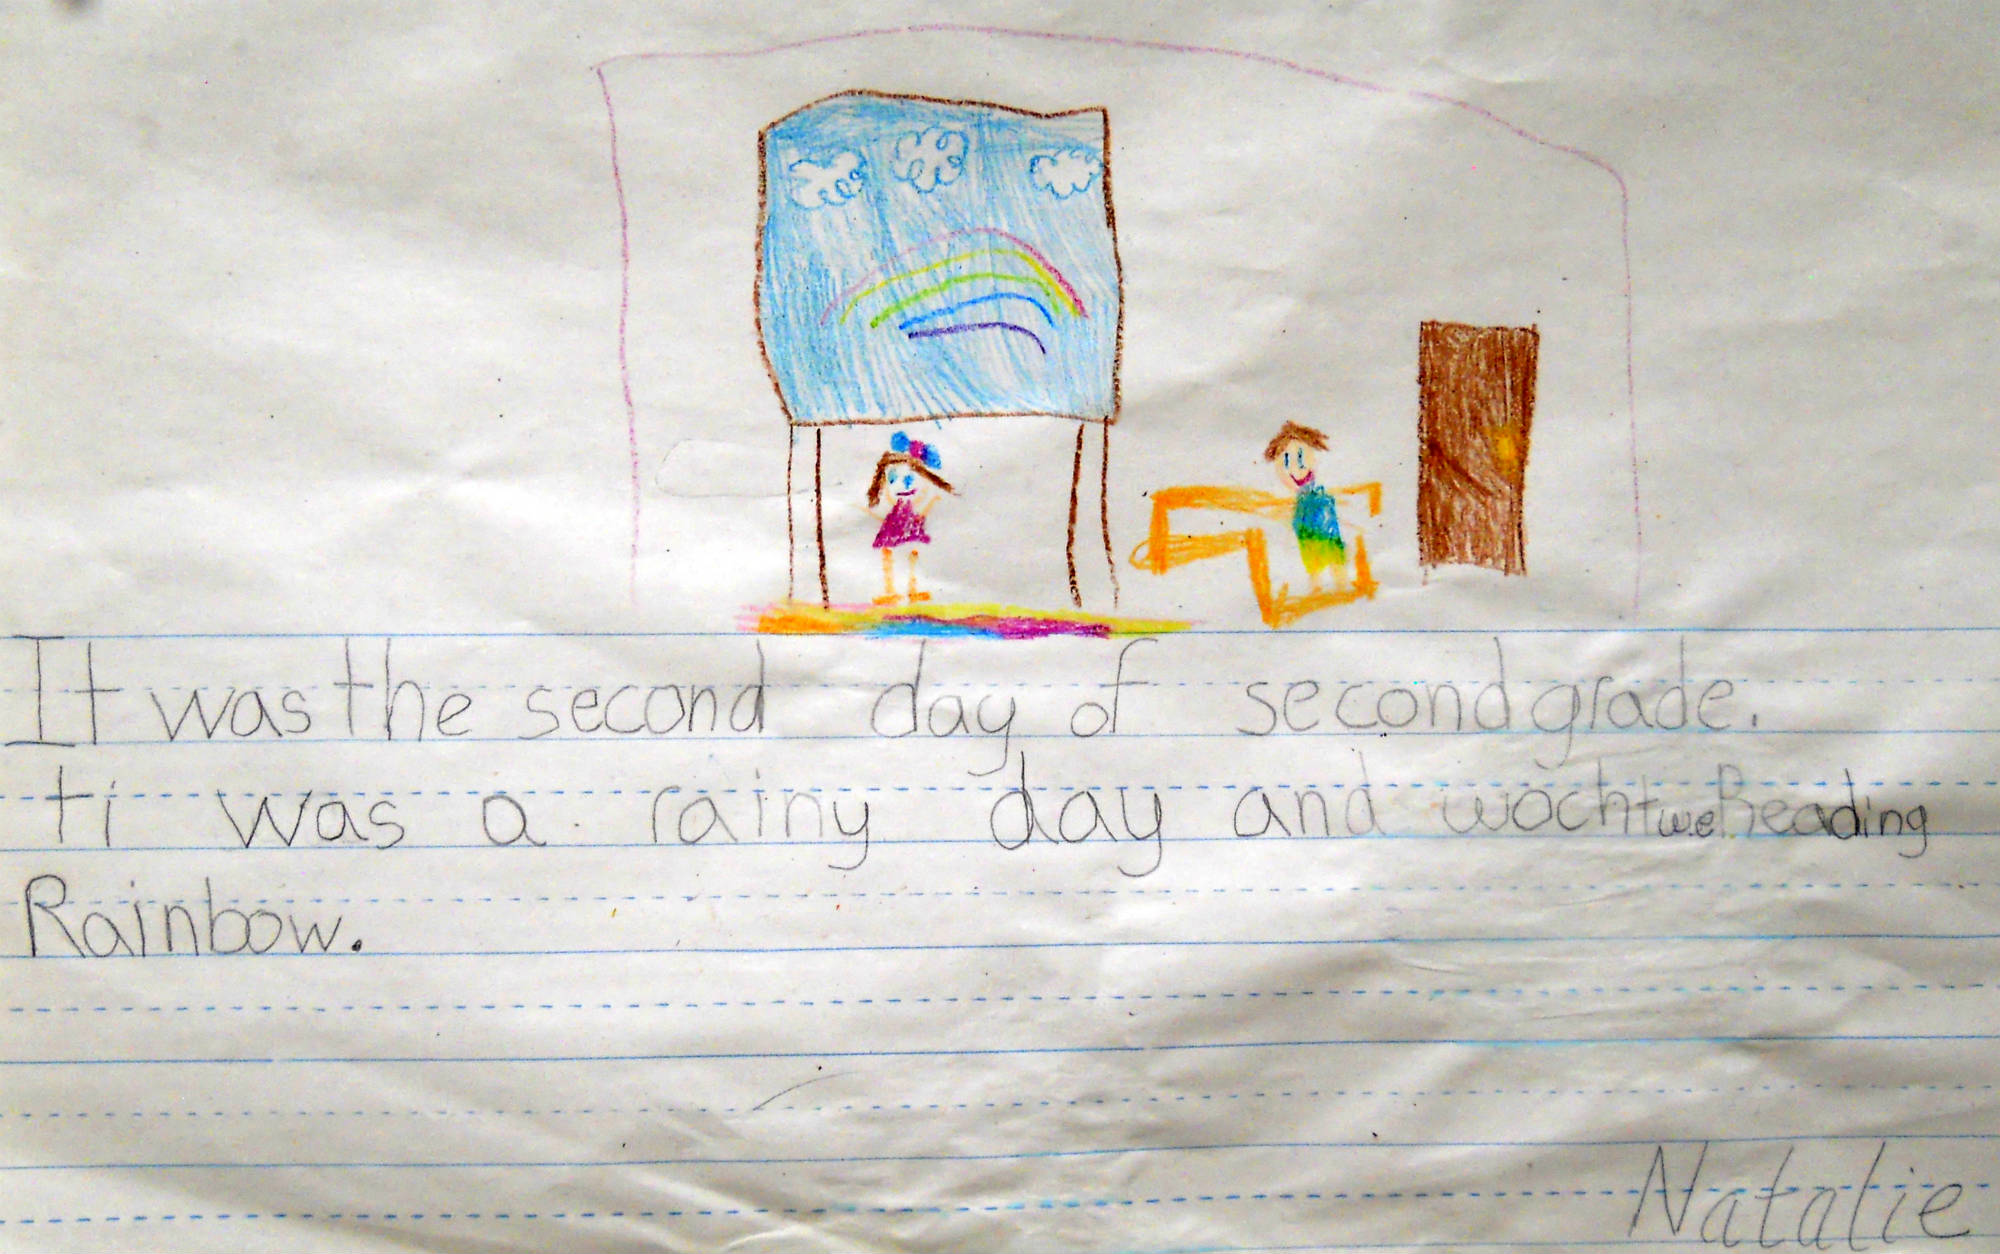 It was the second day of second grade.
ti was a rainy day and wocht we Reading
Rainbow.
Natalie